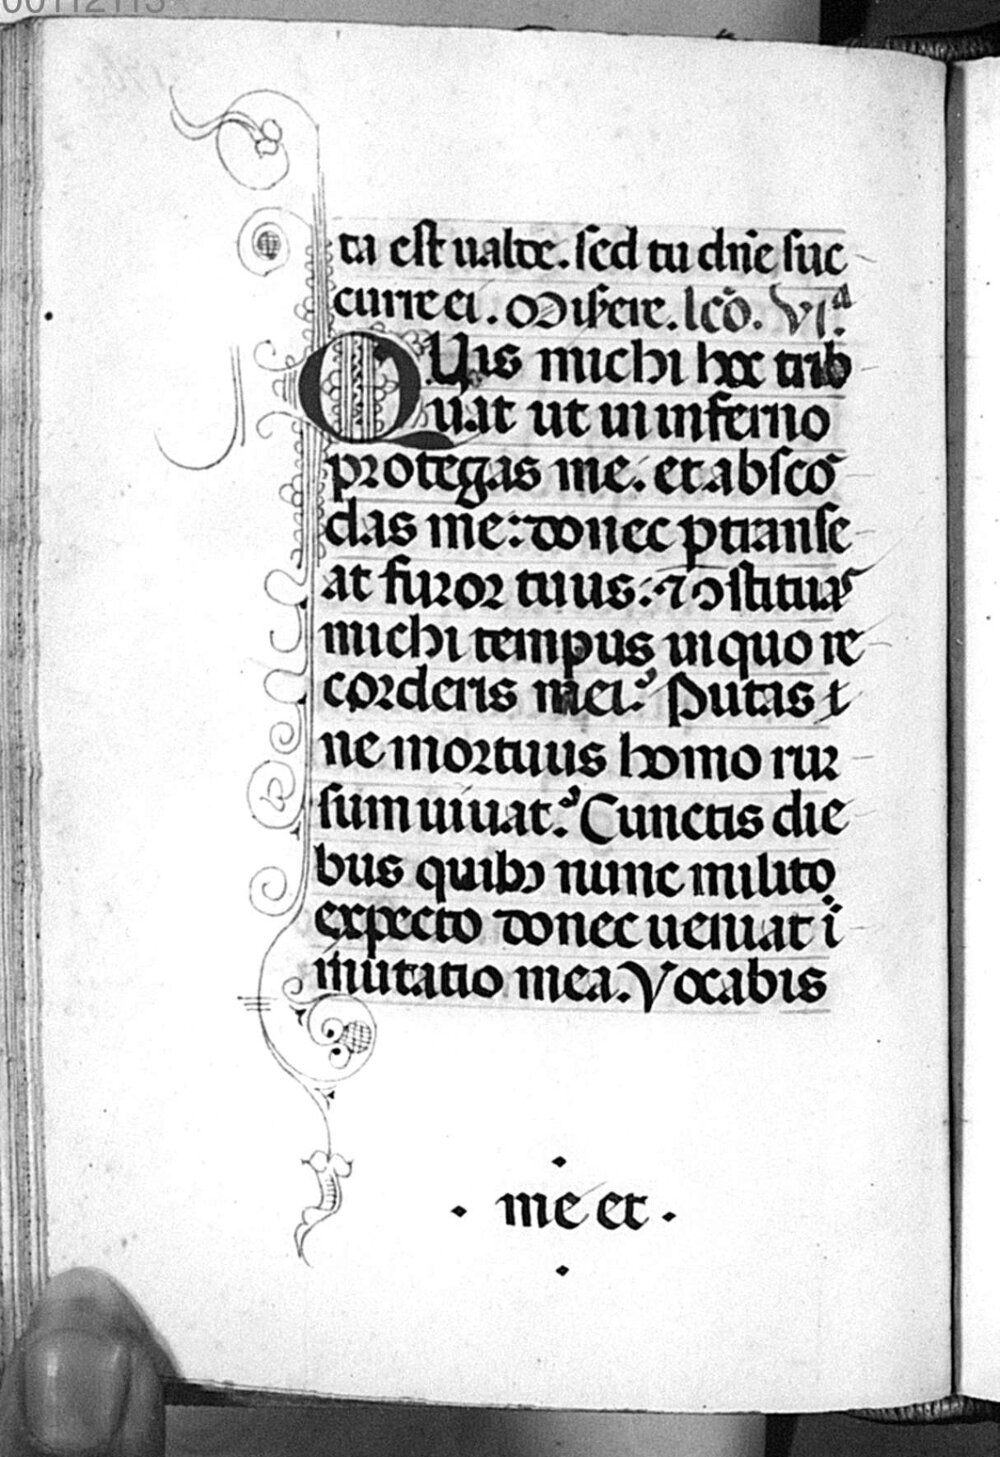 00112113
ta est ualde. sed tu dn̄e suc
curre ei. Miẜere. lcō. VIª.
QUis michi hoc trib
uat ut in inferno
protegas me. et abscō
das me: donec ꝑtranse
at furor tuus: ⁊ ↄstituas
michi tempus in quo re
corderis mei? Putas t
ne mortuus homo rur
sum uiuat? Cunctis die
bus quibꝫ nunc milito
expecto donec ueniat ī
mutatio mea. Vocabis
· me et ·